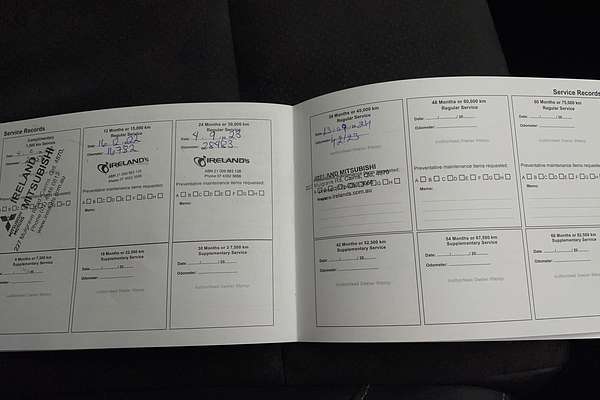 Service Records
Complimentary
1,500 km Service
IRELAND MITSUBISHI
6 Months or 7,500 km
Supplementary Service
Authorised Dealer Stamp
12 Months or 15,000 km
Regular Service
Date: 16 12 22
Odometer: 16752
IRELAND's
ABN 21 009 983 128
Preventative maintenance items requested:
A B C D E F G H
Memo:
18 Months or 22,500 km
Supplementary Service
Date: / / 20
Odometer:
Authorised Dealer Stamp
24 Months or 30,000 km
Regular Service
Date: 4 9 23
Odometer: 28963
IRELAND's
ABN 21 009 983 128
Preventative maintenance items requested:
A B C D E F G H
Memo:
30 Months or 37,500 km
Supplementary Service
Date: / / 20
Odometer:
Authorised Dealer Stamp
Service Records
36 Months or 45,000 km
Regular Service
Date:
Odometer:
IRELAND MITSUBISHI
42 Months or 52,500 km
Supplementary Service
Date: / / 20
Odometer:
Authorised Dealer Stamp
48 Months or 60,000 km
Regular Service
Date: / / 20
Odometer:
Authorised Dealer Stamp
Preventative maintenance items requested:
A B C D E F G H
Memo:
54 Months or 67,500 km
Supplementary Service
Date: / / 20
Odometer:
Authorised Dealer Stamp
60 Months or 75,000 km
Regular Service
Date: / / 20
Odometer:
Authorised Dealer Stamp
Preventative maintenance items requested:
Memo:
66 Months or 82,500 km
Supplementary Service
Date: / / 20
Odometer:
Authorised Dealer Stamp